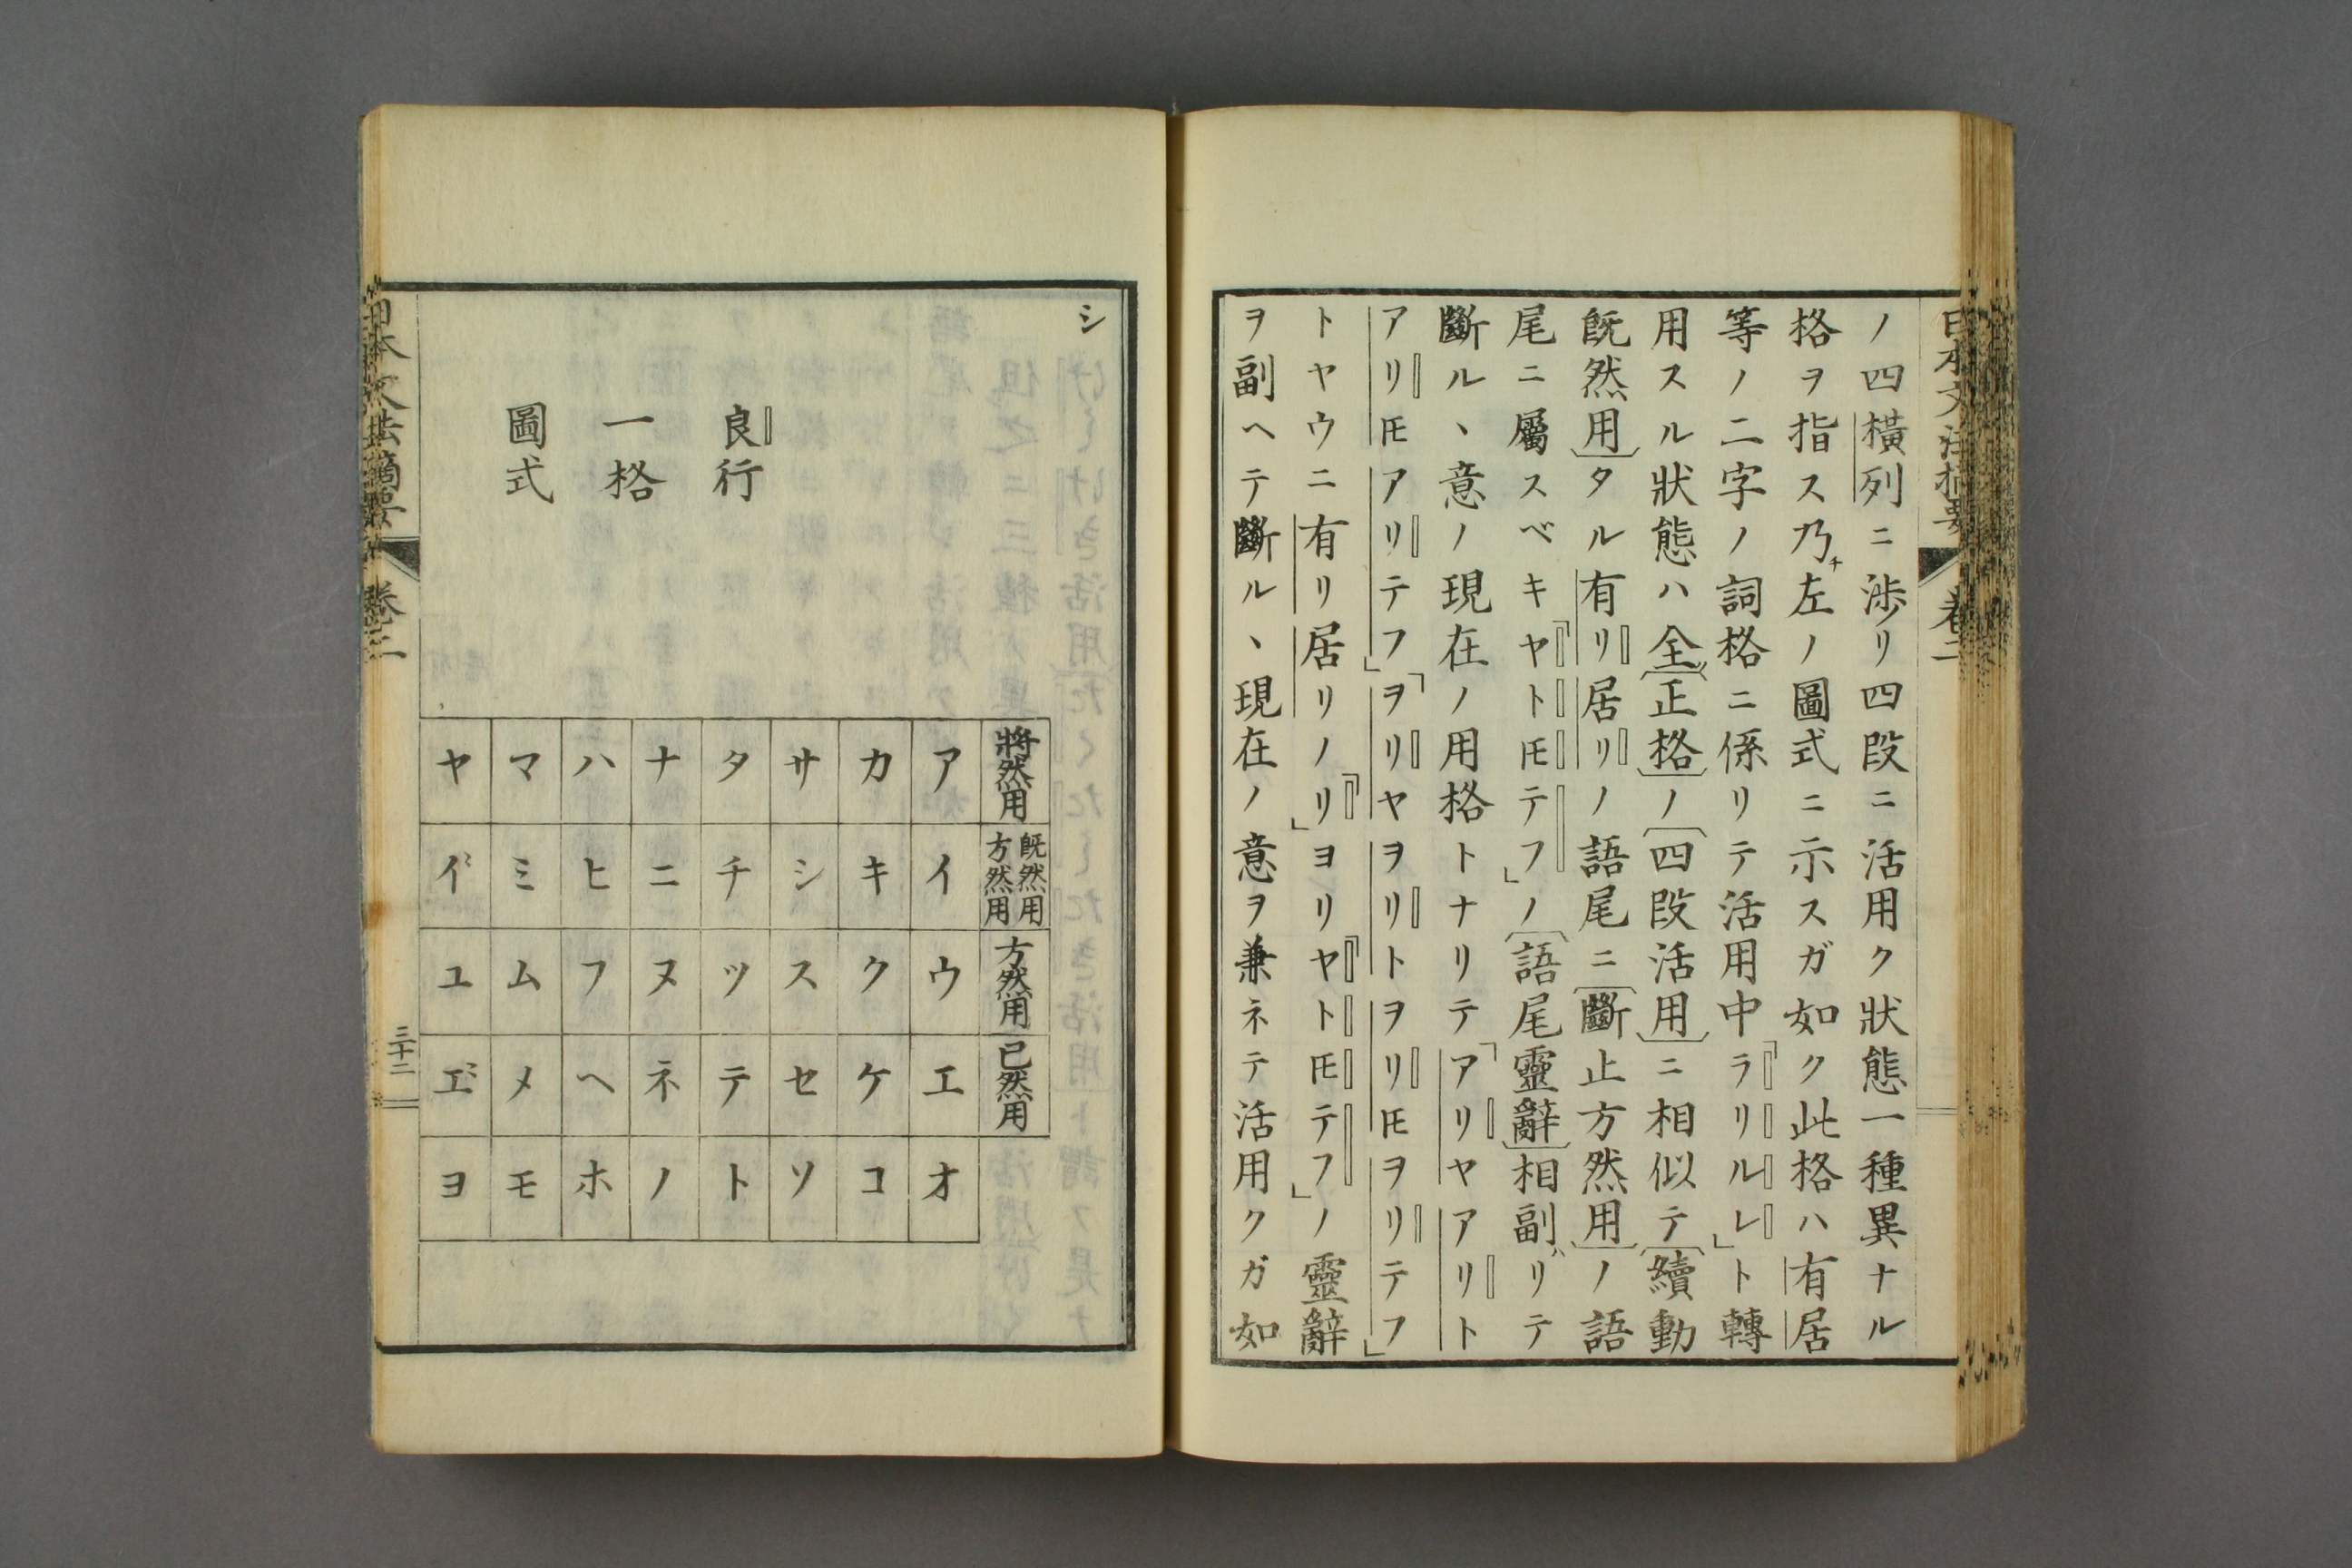 日本文法摘要
卷二
ノ四橫列ニ涉リ四段ニ活用ク狀態一種異ナル
格ヲ指ス乃チ左ノ圖式ニ示スガ如ク此格ハ有居
等ノ二字ノ詞格ニ係リテ活用中「ラリルレ」ト轉
用スル狀態ハ全ク正格ノ四段活用ニ相似テ續動
既然用タル有リ居リノ語尾ニ斷止方然用ノ語
尾ニ屬スベキ「ヤトㇳモテフ」ノ語尾靈辭相副ハリテ
斷ル、意ノ現在ノ用格トナリテ「アリヤアリト
アリㇳモアリテフ」「ヲリヤヲリトヲリㇳモヲリテフ」
トヤウニ有リ居リノ「リ」ヨリ「ヤトㇳモテフ」ノ靈辭
ヲ副ヘテ斷ル、現在ノ意ヲ兼ネテ活用クガ如
シ
良行
一格
圖式
將然用
既然用
方然用
方然用
已然用
アイウエオ
カキクケコ
サシスセソ
タチツテト
ナニヌネノ
ハヒフヘホ
マミムメモ
ヤイユエヨ
日本文法摘要
卷二
三十二